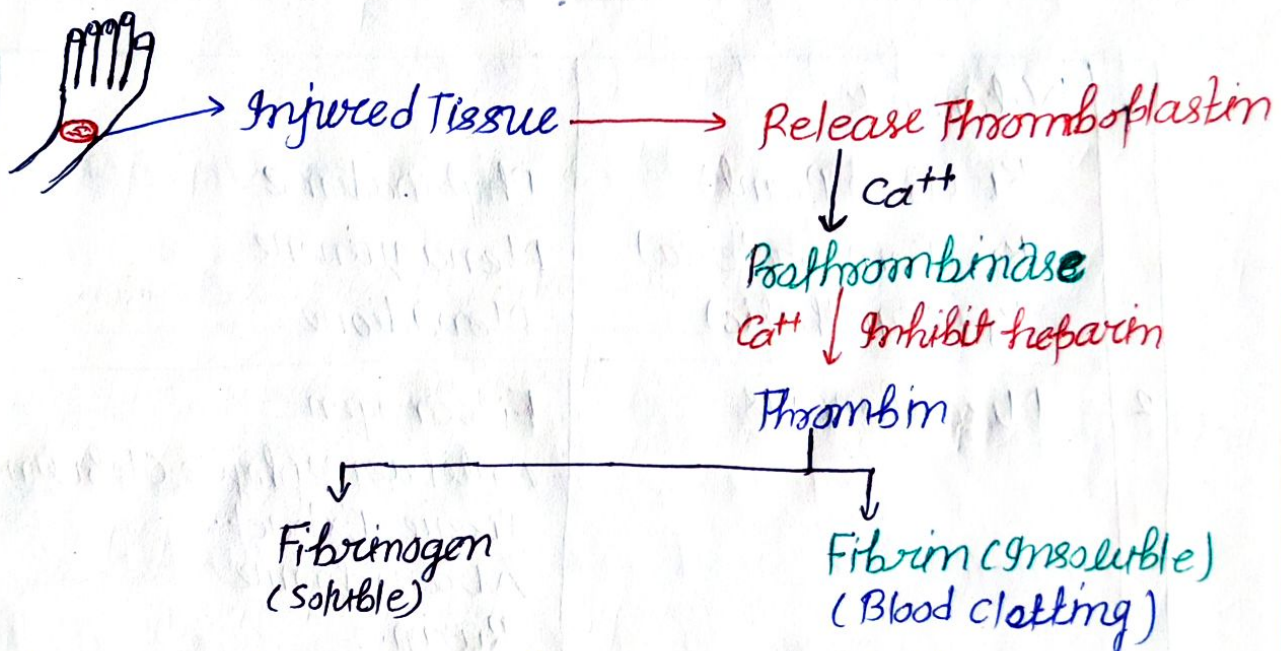 Injured Tissue
Release Thromboplastin
Ca++
Prothrombinase
Ca++ Inhibit heparin
Thrombin
Fibrinogen
(Soluble)
Fibrin (Insoluble)
(Blood Clotting)